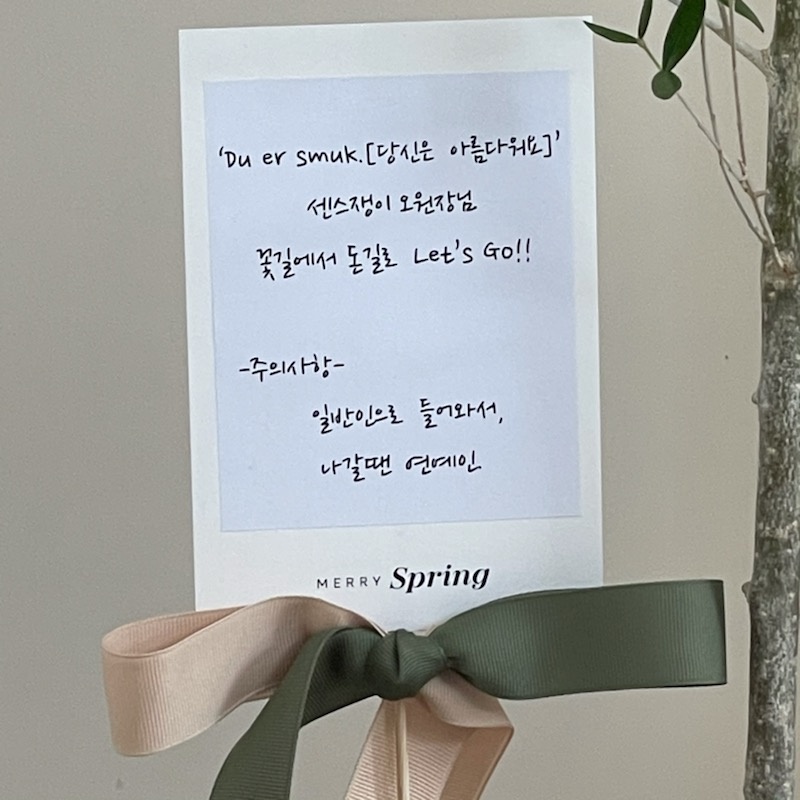 'Du er smuk.[당신은 아름다워요]'
센스쟁이 오원장님
꽃길에서 돈길로 Let's Go!!
-주의사항-
일반인으로 들어와서,
나갈땐 연예인
MERRY Spring